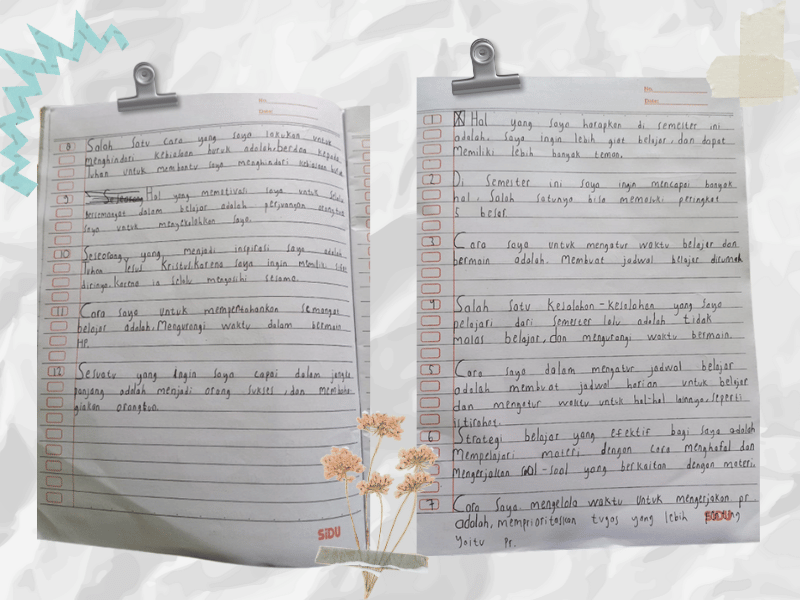 No.
Date.
1 Hal yang saya harapkan di semester ini
adalah. saya ingin lebih giat belajar, dan dapat
Memiliki lebih banyak teman.
2 Di Semester ini saya ingin mencapai banyak
hal. Salah satunya bisa memasuki peringkat
5 besar.
3 Cara saya untuk mengatur waktu belajar dan
bermain adalah. Membuat jadwal belajar dirumah
4 Salah satu Kesalahan-kesalahan yang saya
pelajari dari semester lalu adalah tidak
malas belajar, dan mengurangi waktu bermain.
5 Cara saya dalam mengatur jadwal belajar
adalah membuat jadwal harian untuk belajar
dan mengatur waktu untuk hal-hal lainnya, seperti
istirahat.
6 Strategi belajar yang efektif bagi saya adalah
Mempelajari materi dengan cara menghafal dan
Mengerjakan soal-soal yang berkaitan dengan materi.
7 Cara saya mengelola waktu untuk mengerjakan pr
adalah, memprioritaskan tugas yang lebih penting
yaitu pr.
SIDU
No.
Date.
8 Salah satu cara yang saya lakukan untuk
menghindari kebiasaan buruk adalah, berdoa kepada
tuhan untuk membantu saya menghindari kebiasaan
9 Hal yang memotivasi saya untuk selalu
bersemangat dalam belajar adalah perjuangan orangtua
saya untuk menyekolahkan saya.
10 Seseorang yang menjadi inspirasi saya adalah
Tuhan Yesus Kristus. Karena saya ingin memiliki sifat
dirinya. Karena ia selalu mengasihi sesama.
11 Cara saya untuk mempertahankan semangat
belajar adalah, Mengurangi waktu dalam bermain
HP.
12 Sesuatu yang ingin saya capai dalam jangka
panjang adalah menjadi orang sukses, dan membaha
giakan orangtua.
SIDU